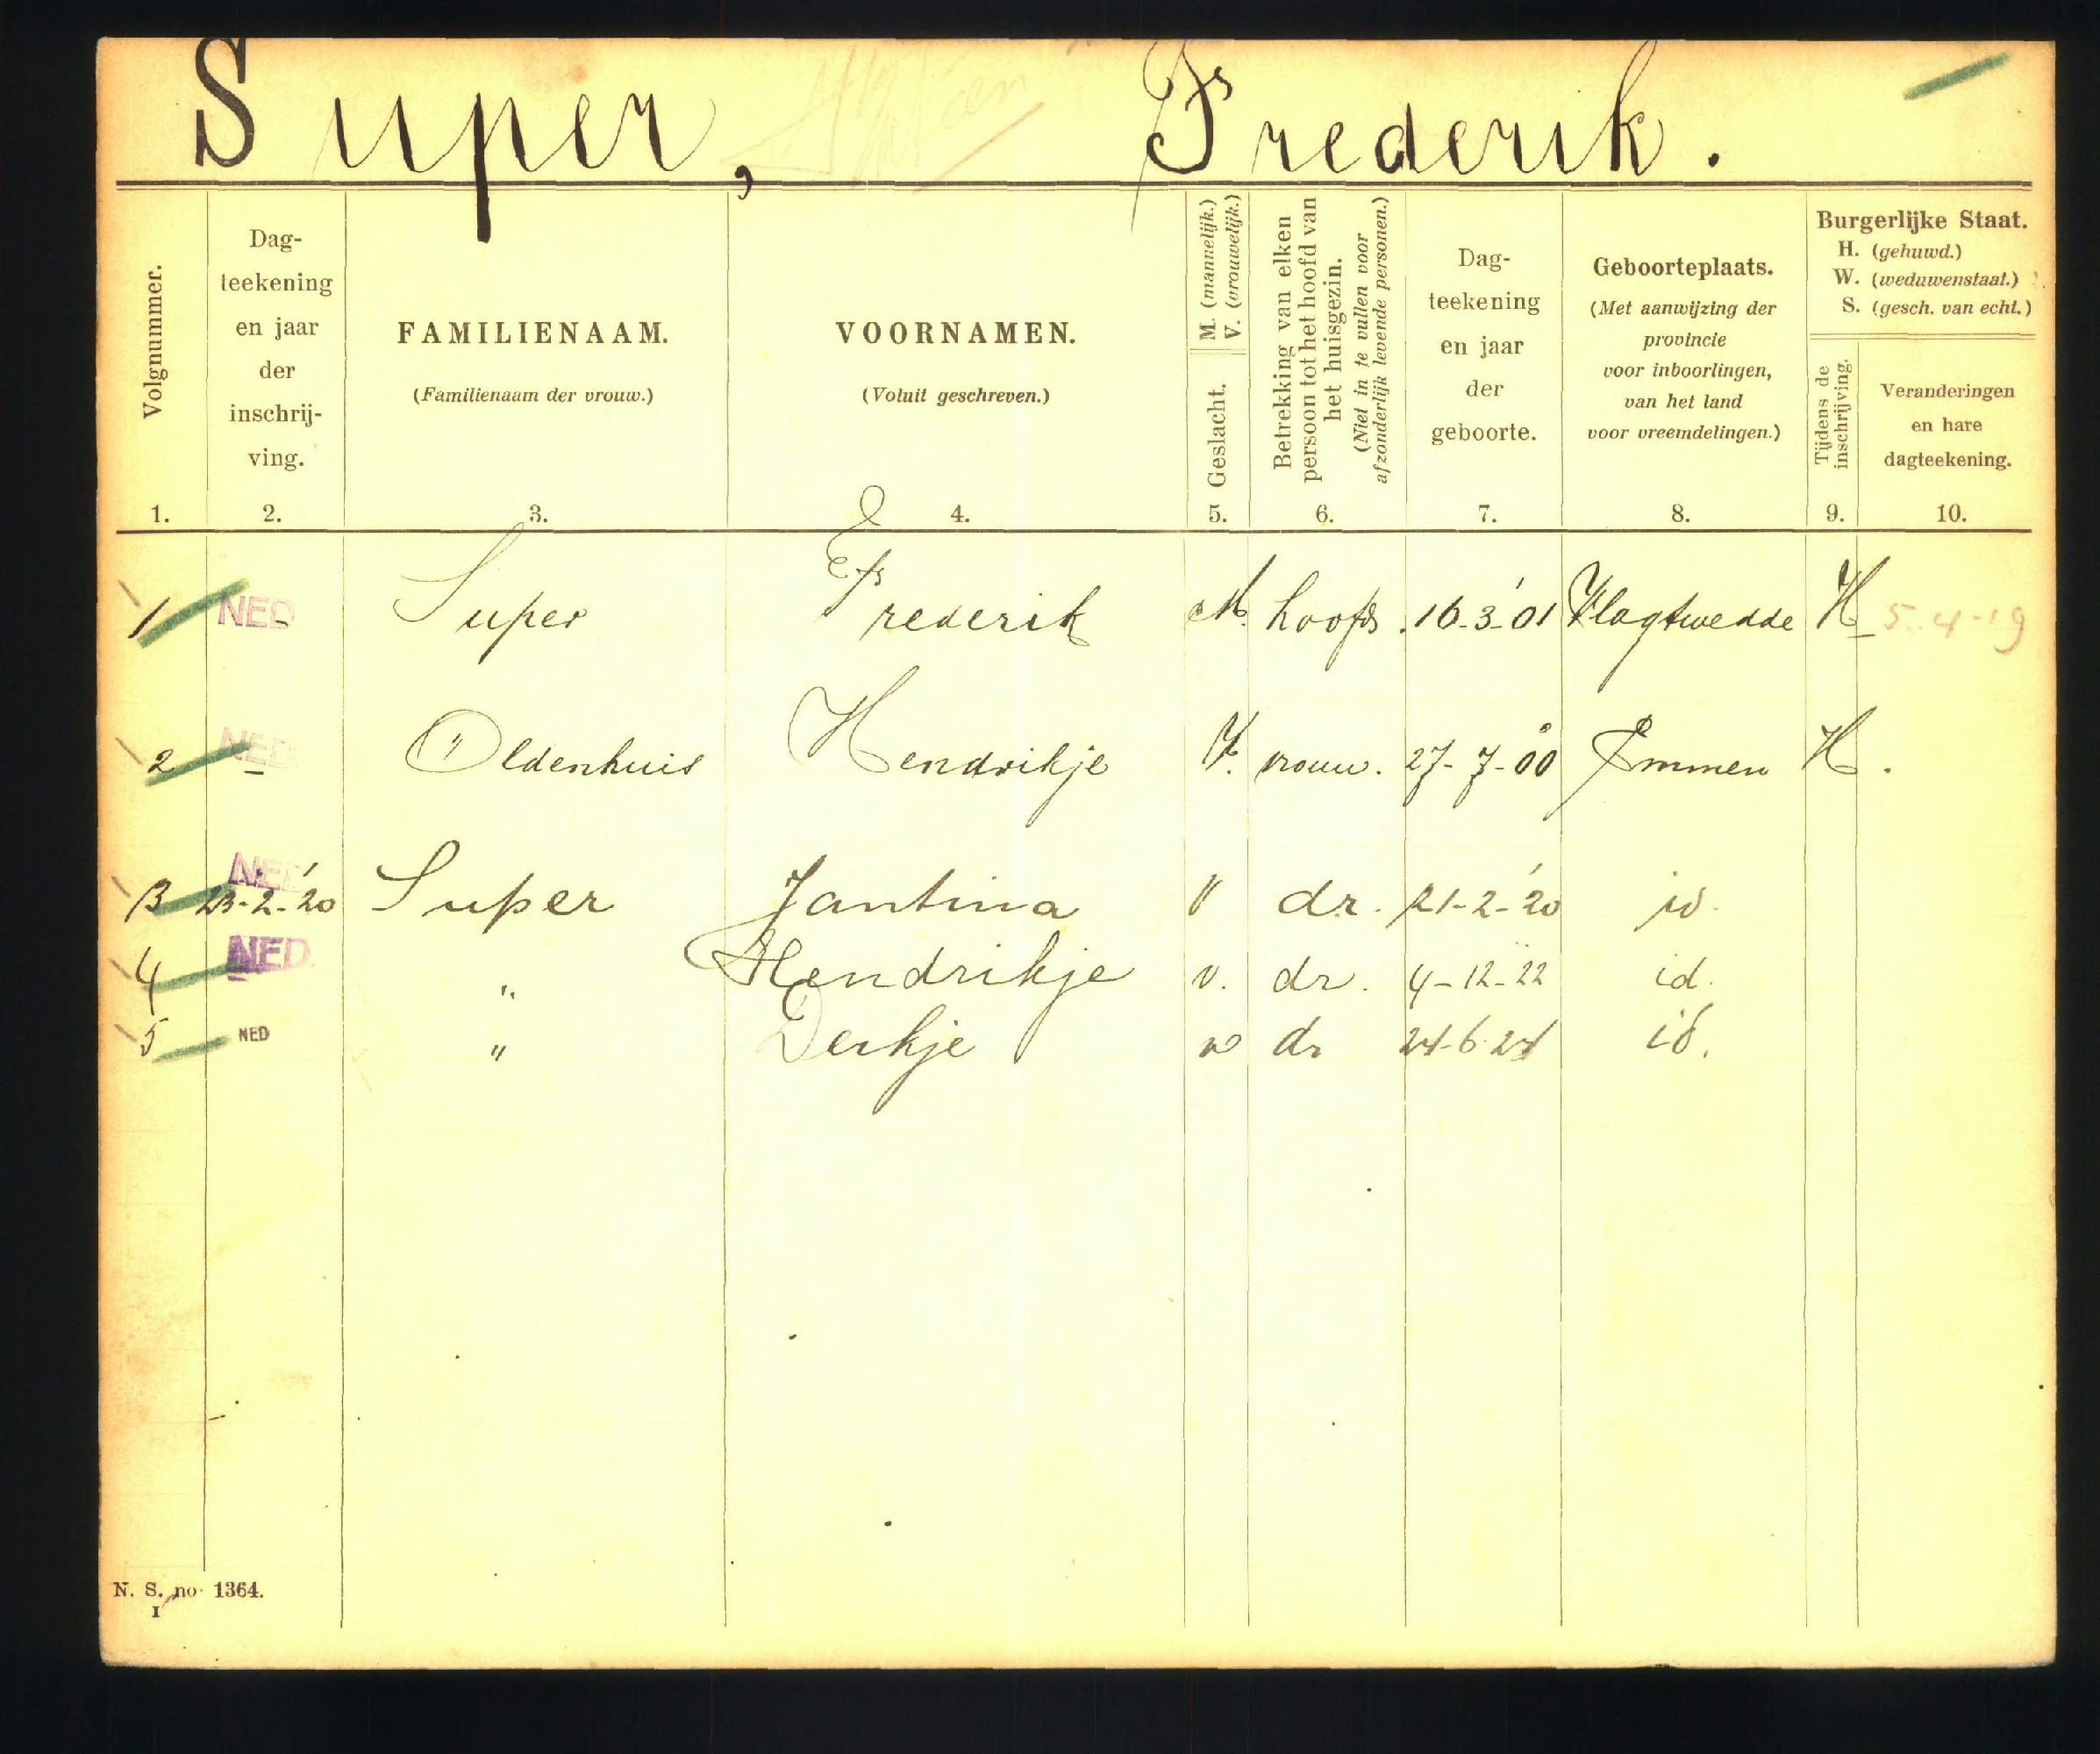 Super, Frederik.
Volgnummer.
Dag-
teekening
en jaar
der
inschrij-
ving.
FAMILIENAAM.
(Familienaam der vrouw.)
VOORNAMEN.
(Voluit geschreven.)
M. (mannelijk.)
V. (vrouwelijk.)
Geslacht.
Betrekking van elken
persoon tot het hoofd van
het huisgezin.
(Niet in te vullen voor
afzonderlijk levende personen.)
Dag-
teekening
en jaar
der
geboorte.
Geboorteplaats.
(Met aanwijzing der
provincie
voor inboorlingen,
van het land
voor vreemdelingen.)
Burgerlijke Staat.
H. (gehuwd.)
W. (weduwenstaat.)
S. (gesch. van echt.)
Tijdens de
inschrijving.
Veranderingen
en hare
dagteekening.
1. 2. 3. 4. 5. 6. 7. 8. 9. 10.
1 NED Super Frederik M. hoofd. 16-3-'01 Vlagtwedde H 5-4-19
2 NED. Oldenhuis Hendrikje V. vrouw. 27-7-00 Emmen H.
3 NED 23-2-'20 Super Jantina V dr. 21-2-'20 id.
4 NED. " Hendrikje v. dr. 4-12-22 id.
5 NED " Derkje v dr 24-6-24 id.
N. S. no 1364.
I